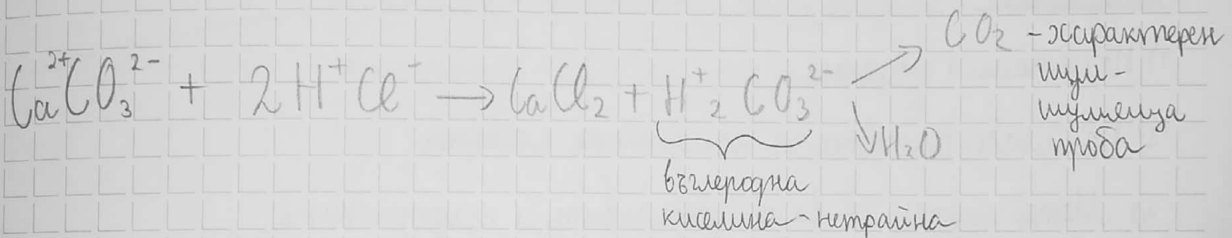 Ca²⁺CO₃²⁻ + 2H⁺Cl⁻ → CaCl₂ + H⁺₂CO₃²⁻ ↗ CO₂ - характерен
шум -
шумяща
проба
↘ H₂O
въглеродна
киселина - нетрайна